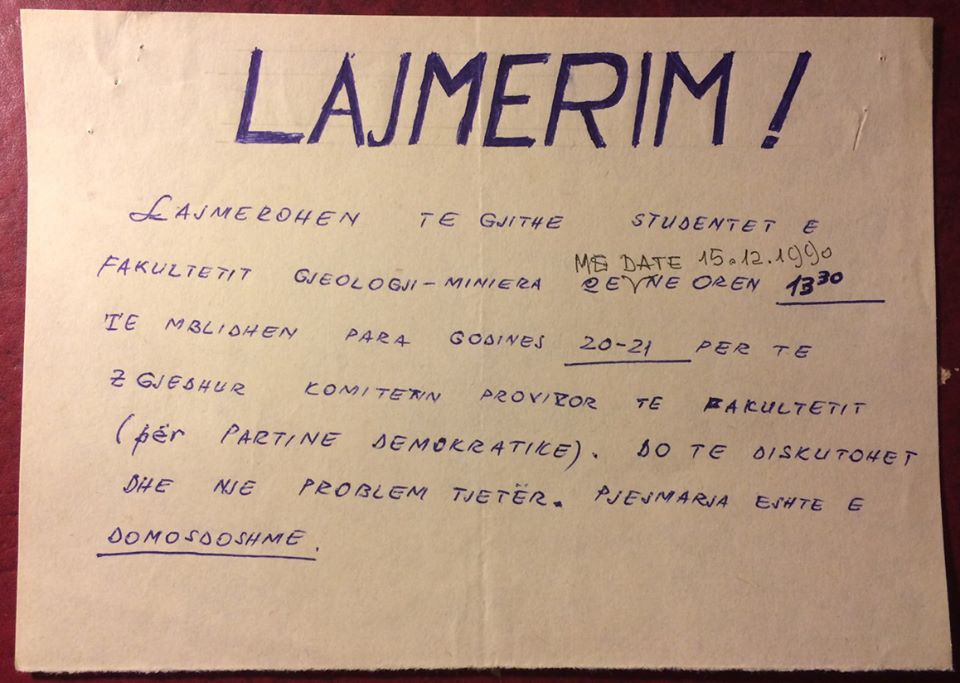 LAJMERIM!
LAJMEROHEN TE GJITHE STUDENTET E
ME DATE 15.12.1990
FAKULTETIT GJEOLOGJI-MINIERA QE NE OREN 13 30
TE MBLIDHEN PARA GODINES 20-21 PER TE
ZGJEDHUR KOMITETIN PROVIZOR TE FAKULTETIT
(për PARTINE DEMOKRATIKE). DO TE DISKUTOHET
DHE NJE PROBLEM TJETËR. PJESMARJA ESHTE E
DOMOSDOSHME.